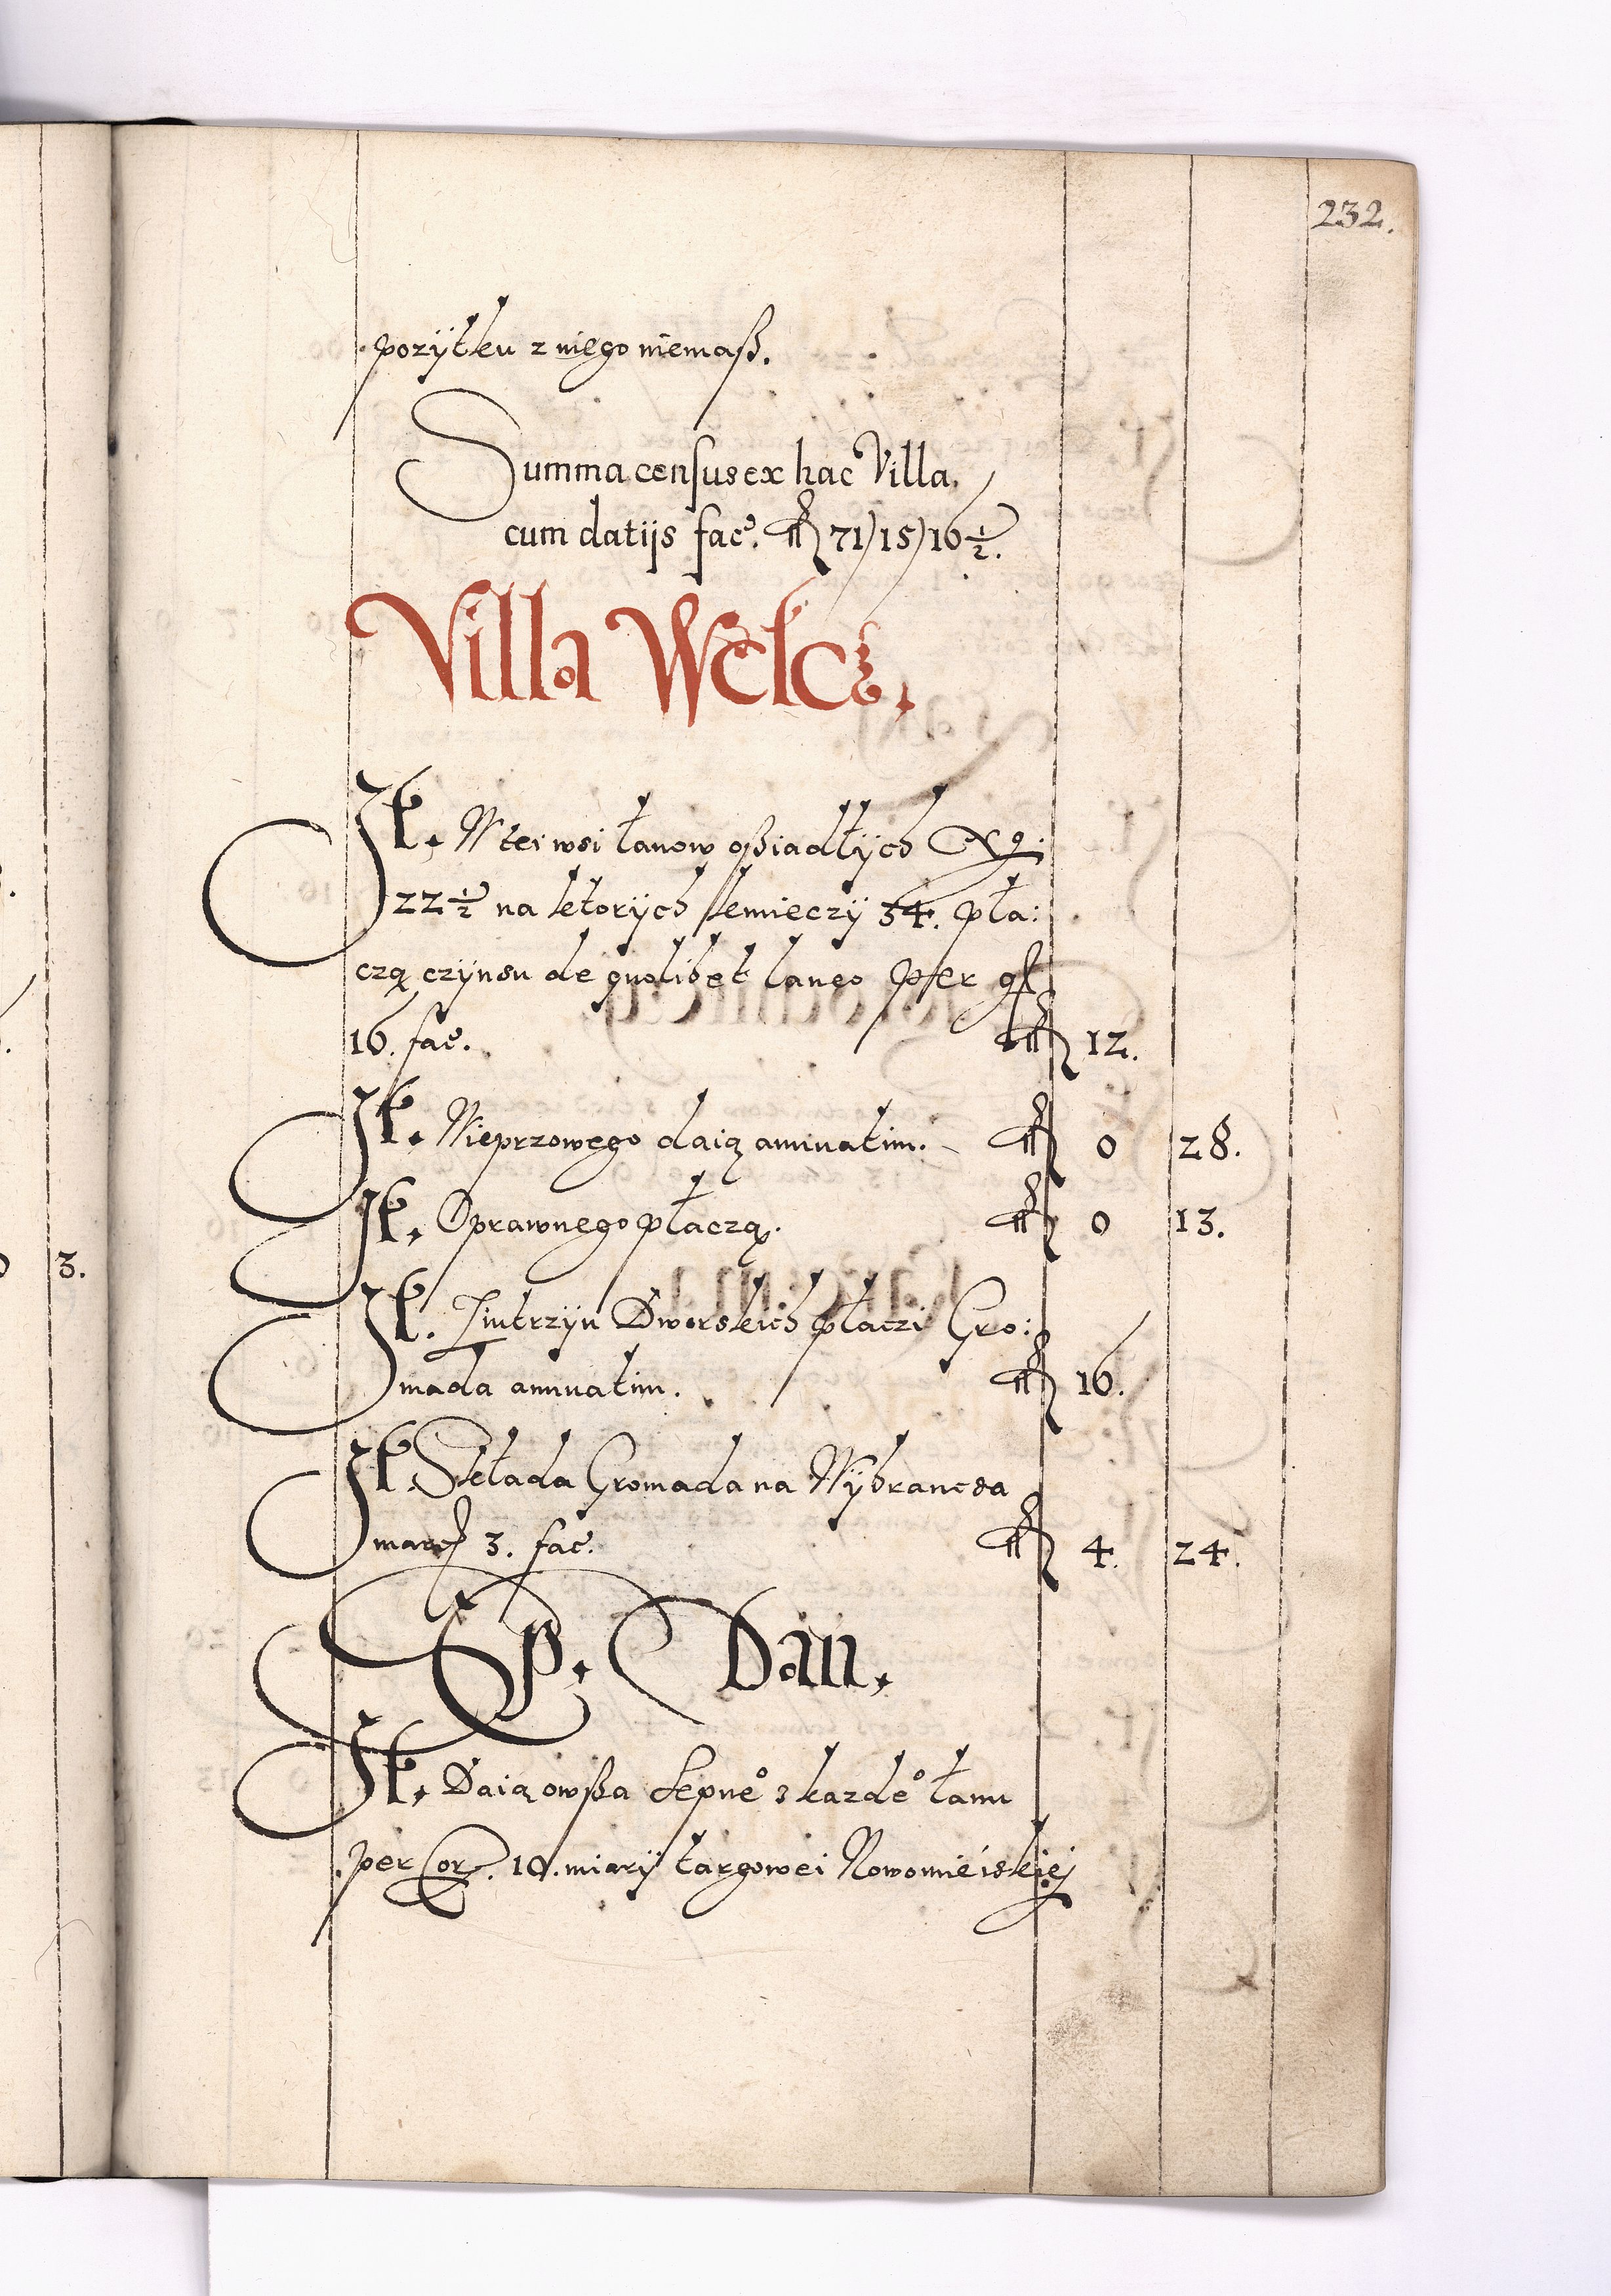 232.
pozÿtku z niego niemaß.
Summa census ex hac Villa.
cum datijs facͤ. fl 71)15)16½.
Villa Wełcz.
It. W tei wsi łanow oßiadłÿch No.
22½ na ktorÿch kmieczÿ 34. pła:
czą czÿnsu de quolibet laneo per gſ
16. fac. fl 12.
It. Wieprzowego daią annuatim. fl 0 28.
It. Oprawnego płaczą. fl 0 13.
It. Jintrzÿn Dworskich płaczi Gro:
mada annuatim. fl 16.
It. Składa Gromada na Wÿbrancza
marcſ 3. fac. fl 4. 24.
Sp. Dan.
It. Daią owßa sepneº z kazdeº łanu
per Cor. 10. miarÿ targowei Nowomieiskiej
3.